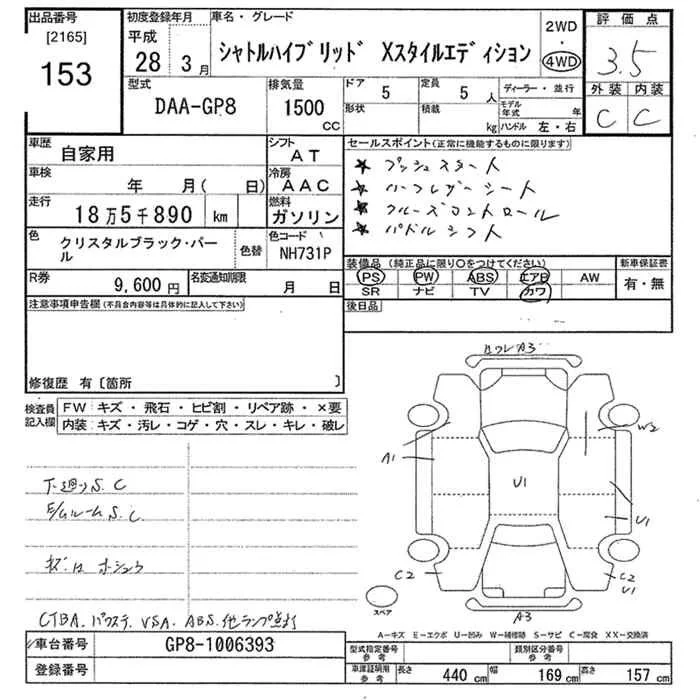 出品番号
[2165]
153
初度登録年月
平成
28 3月
車名・グレード
シャトルハイブリッド Xスタイルエディション
2WD
・
4WD
評価点
3.5
外装 内装
C C
型式
DAA-GP8
排気量
1500
CC
ドア
5
形状
定員
5人
積載
kg
ディーラー・並行
モデル年式 年
ハンドル 左・右
車歴
自家用
シフト
AT
車検
年 月( 日)
冷房
AAC
走行
18万5千890 km
燃料
ガソリン
色
クリスタルブラック・パール
色替
色コード
NH731P
R券
9,600円
名変通知期限
月 日
セールスポイント(正常に機能するものに限ります)
★ プッシュスタート
★ ハーフレザーシート
★ クルーズコントロール
★ パドルシフト
装備品(純正品に限り○をつけてください)
PS PW ABS エアB AW
SR ナビ TV カワ
新車保証書
有・無
後日品
注意事項申告欄(不具合内容等は具体的に記入して下さい)
修復歴 有〔箇所 〕
検査員記入欄
FW:キズ・飛石・ヒビ割・リペア跡・×要
内装:キズ・汚レ・コゲ・穴・スレ・キレ・破レ
下廻りS.C
E/ムルームS.C
CTBA. パワステ. VSA. ABS. 他ランプ点灯
A3
A1
W2
U1
U1
C2
C2
U1
A3
スペア
A-キズ E-エクボ U-凹み W-補修跡 S-サビ C-腐食 XX-交換済
車台番号
GP8-1006393
登録番号
型式指定番号
参考
類別区分番号
参考
車庫証明用
参考
長さ 440 cm
幅 169 cm
高さ 157 cm